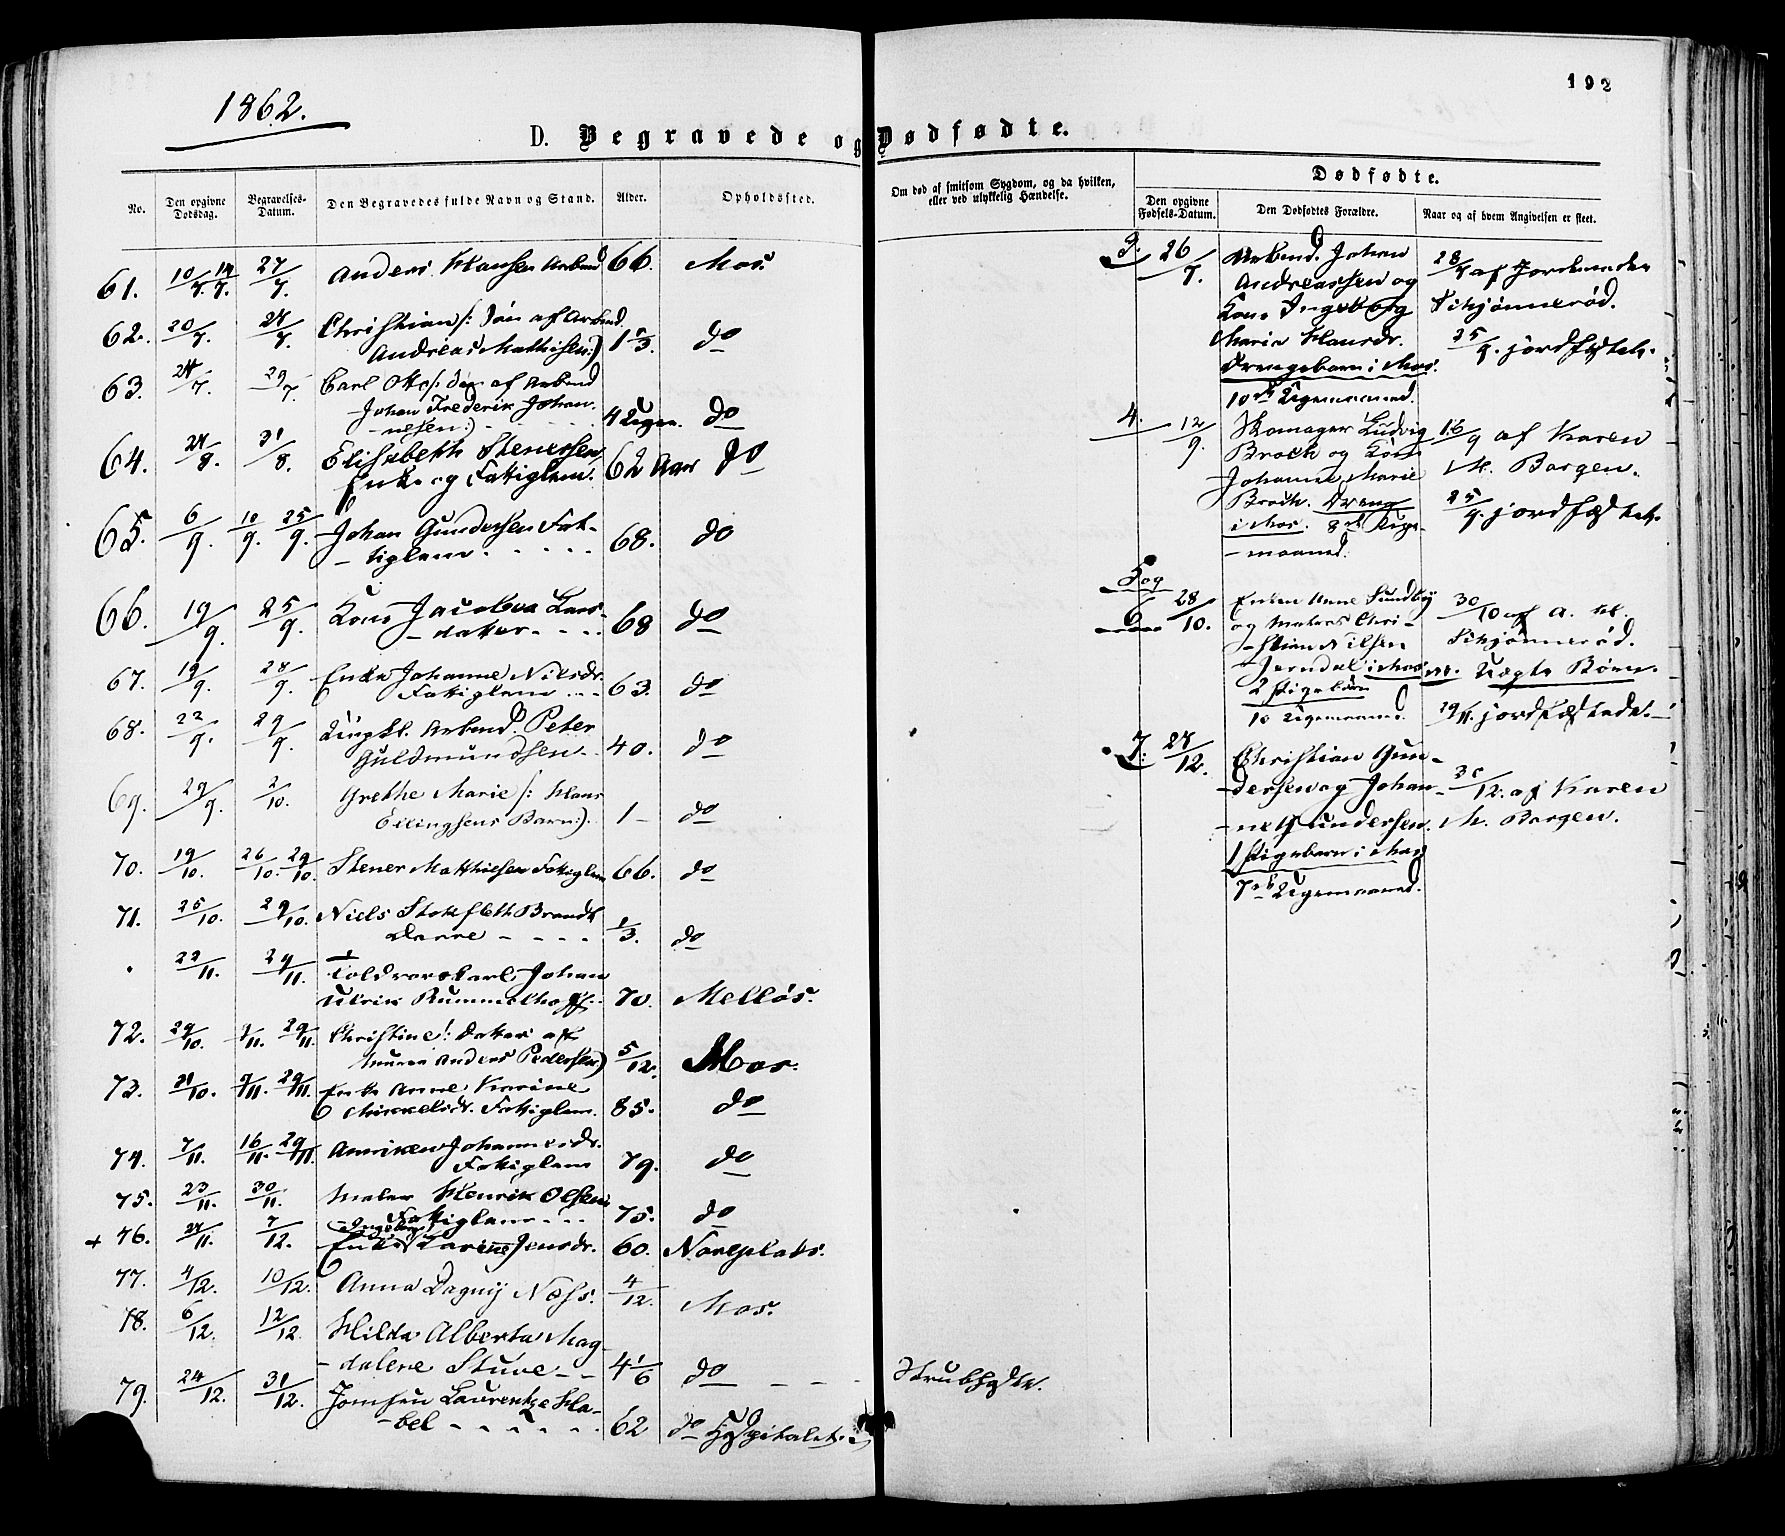 1862.
192
D. Begravede og Dødfødte.
No.
Den opgivne Dødsdag.
Begravelses-Datum.
Den Begravedes fulde Navn og Stand.
Alder.
Opholdssted.
Om død af smitsom Sygdom, og da hvilken, eller ved ulykkelig Hændelse.
Dødfødte.
Den opgivne Fødsels-Datum.
Den Dødfødtes Forældre.
Naar og af hvem Angivelsen er skeet.
61. 10/7. 14/7. 27/7. Anders Hansen Arbmd 66. Mos.
62. 20/7 24/7. Christian /: Søn af Arbmd.
Andreas Mathisen:) 1 1/3. do
63. 24/7. 29/7. Carl Otto /: Søn af Arbmd
Johan Frederik Johan-
nesen:) 4 Uger. do
64. 24/8. 31/8. Elisabeth Stenersen
Enke og Fattiglem. 62 Aar do
65. 6/9. 10/9. 25/9. Johan Gundersen Fat-
tiglem. 68. do
66. 19/9. 25/9. Kone Jacobea Lars-
datter. 68 do
67. 19/9. 28/9. Enke Johanne Nilsdr.
Fattiglem 63. do
68. 22/9. 29/9. Ungkl. Arbmd. Peter
Guldmundsen. 40. do
69. 29/9. 2/10. Grethe Marie /: Hans
Ellingsens Barn:). 1 – do
70. 19/10. 26/10. 29/10. Stener Matthisen Fattiglem 66. do
71. 25/10. 29/10. Niels Stokfleth Brandt
Darre 1/3. do
22/11. 29/11. Toldroerskarl Johan
Ulrik Rummelhoff. 70. Melløs.
72. 29/10. 9/11. 29/11. Christine /: Datter af
Murer Anders Pedersen) 5/12. Mos.
73. 31/10. 9/11. 29/11. Enke Anne Karine
Mikkelsdr. Fattiglem. 85. do
74. 7/11. 16/11. 29/11. Anniken Johannesdr.
Fattiglem 79. do
75. 23/11. 30/11. Maler Henrik Olsen
Fattiglem 75. do
+ 76. 24/11. 7/12. Ingeborg
Enke Karine Jensdr. 60. Noreplads.
77. 4/12. 10/12. Anna Dagny Næss. 4/12. Mos.
78. 6/12. 12/12. Hilda Alberta Mag-
dalene Stuve 4 1/6 do Strubhoste.
79. 24/12. 31/12. Jomfru Laurentze Ha-
bel 62 do Hospitalet.
3. 26/7. Arbmd. Johan 28/7 af Jordemoder
Andreassen og
Kone Ingeborg Schjønnerød.
Marie Hansdr. 25/9. jordfæstet.
Drengebarn i Mos.
10de Ugemaaned.
4. 12/9. Skomager Ludvig 16/9 af Karen
Broch og Kone
Johanne Marie M. Borgen.
Broch. Dreng 25/9. jordfæstet.
i Mos. 8de Uge-
maaned.
5 og
6 28/10. Enken Anne Sundby 30/10 af A. M.
og Malers Chri-
stian Nilsen Schjønnerød.
Jerndal i Mos. Uægte Børn.
2 Pigebørn
10 Ugemaaned. 29/11. jordfæstede.
7. 24/12. Christian Gun-
dersen og Johan- 30/12. af Karen
ne Gundersen. M. Borgen.
1 Pigebarn i Mos
7de Ugemaaned.